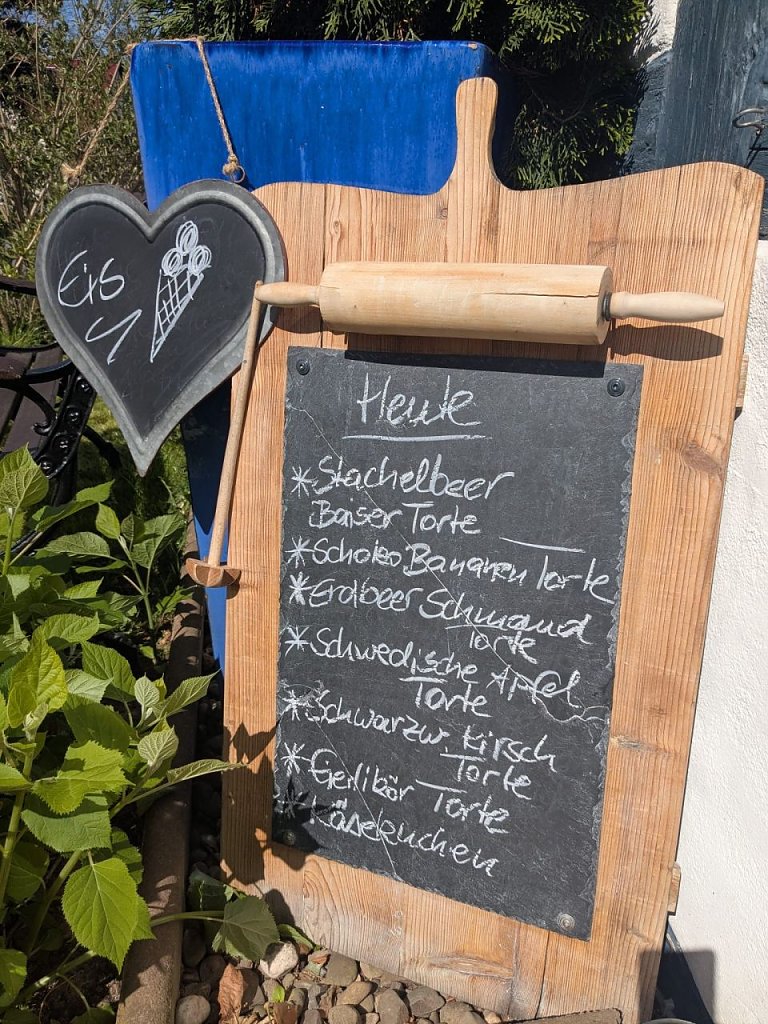 Eis
Heute
*Stachelbeer
Baiser Torte
*Schoko Bananen Torte
*Erdbeer Schmand
Torte
*Schwedische Apfel
Torte
*Schwarzw. Kirsch
Torte
*Eierlikör Torte
*Käsekuchen